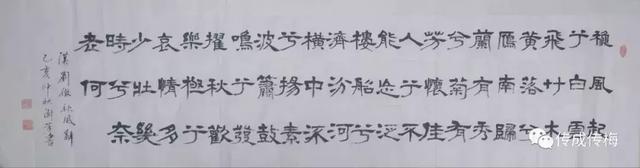 秋風起
兮白雲
飛艸木
黃落兮
雁南歸
蘭有秀
兮菊有
芳懷佳
人兮不
能忘泛
樓船兮
濟汾河
橫中流
兮揚素
波簫鼓
鳴兮發
櫂歌歡
樂極兮
哀情多
少壯幾
時兮奈
老何
漢劉徹秋風辭
己亥仲秋書
传成传梅